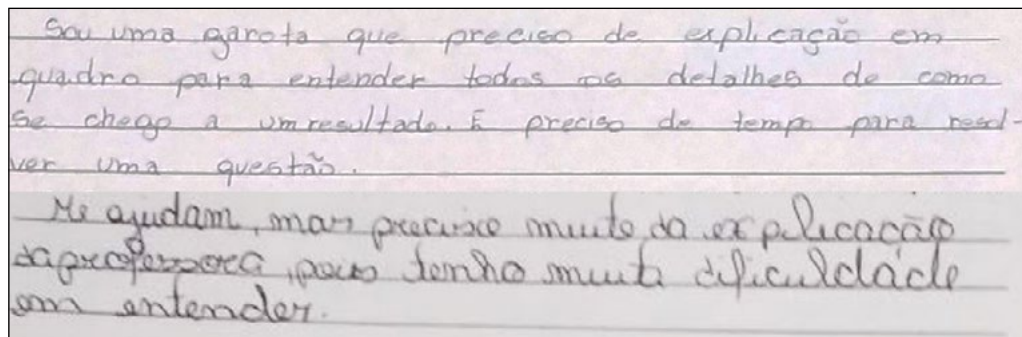 Sou uma garota que preciso de explicação em
quadro para entender todos os detalhes de como
se chego a um resultado. E preciso de tempo para resol-
ver uma questão.
Me ajudam, mas preciso muito da explicação
da professora, pois tenho muita dificuldade
em entender.